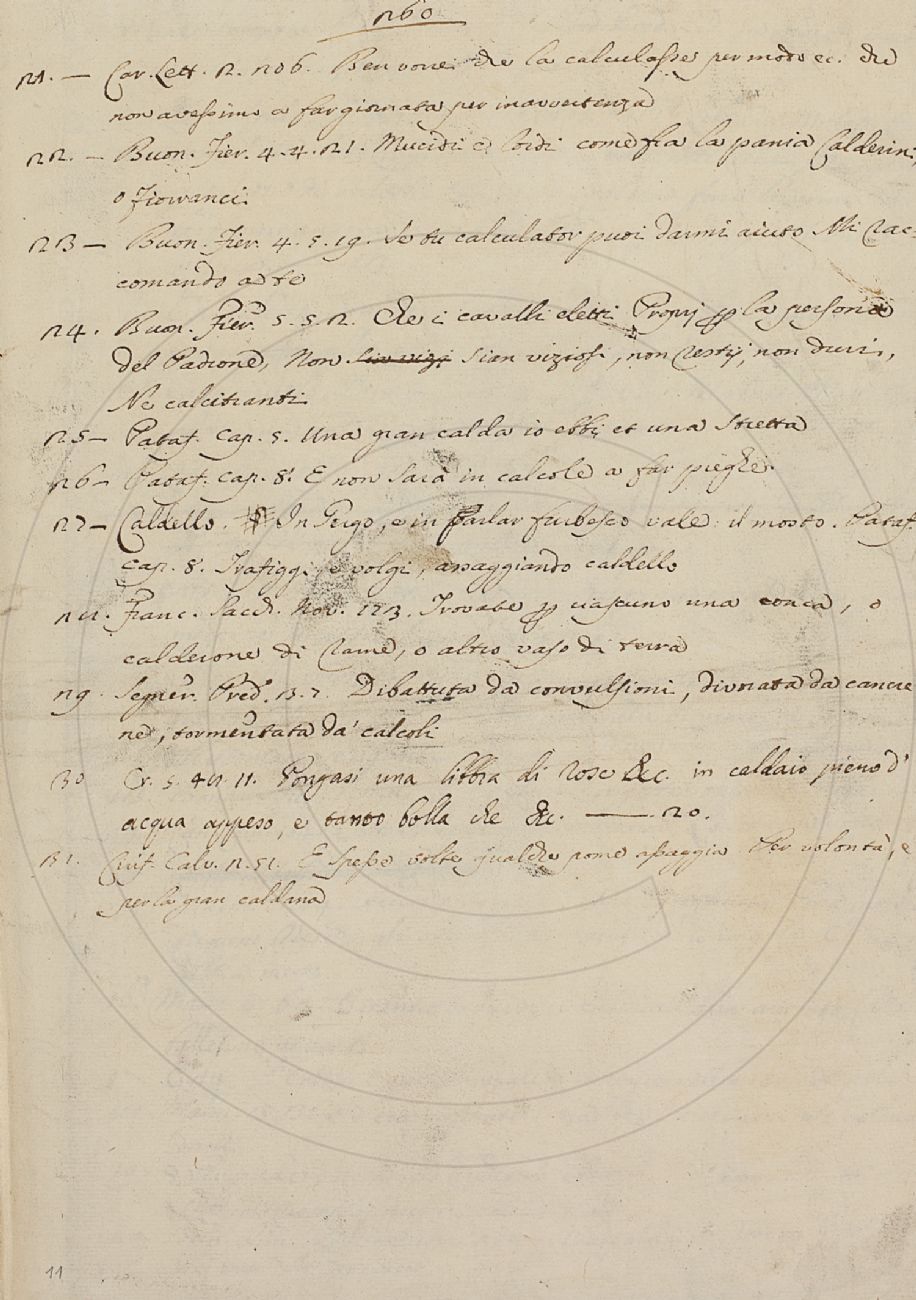 260
21. — Car. Lett. 2. 206. Ben vorrei che la calculasse per modo ec. che
non avessimo a far giornata per inavvertenza
22. — Buon. Fier. 4. 4. 21. Mucidi e lordi come fia la pania Calderini,
o Fiorranci
23 — Buon. Fier. 4. 5. 19. Se tu calculator puoi darmi aiuto Mi rac-
comando a te
24. Buon. Fier. 5. 5. 2. Che i cavalli eletti Proprj la persona
del Padrone, Non sian viziosi, non restij, non duri,
Nè calcitranti
25 — Pataf. Cap. 5. Una gran calda io ebbi et una stretta
26 — Pataf. Cap. 8. E non sarà in calcole a far pieghe.
27 — Caldello. In Gergo, e in Parlar furbesco vale: il mosto. Pataf.
Cap. 8. Trafiggi, e volgi, assaggiando caldello
28. Franc. Sacch. Nov. 173. Trovate ciascuno una conca, o
calderone di rame, o altro vaso di terra
29. Segner. Pred. 13. 7. Dibattuta da convulsioni, divorata da cancre
ne, tormentata da' calcoli
30 Cr. 5. 48. 11. Pongasi una libbra di rose &c. in caldaio pieno d'
acqua appeso, e tanto bolla che &c. — 20.
31. Ciriff. Calv. 2. 51. E spesse volte qualche pome assaggia Per volontà, e
per la gran caldana
11